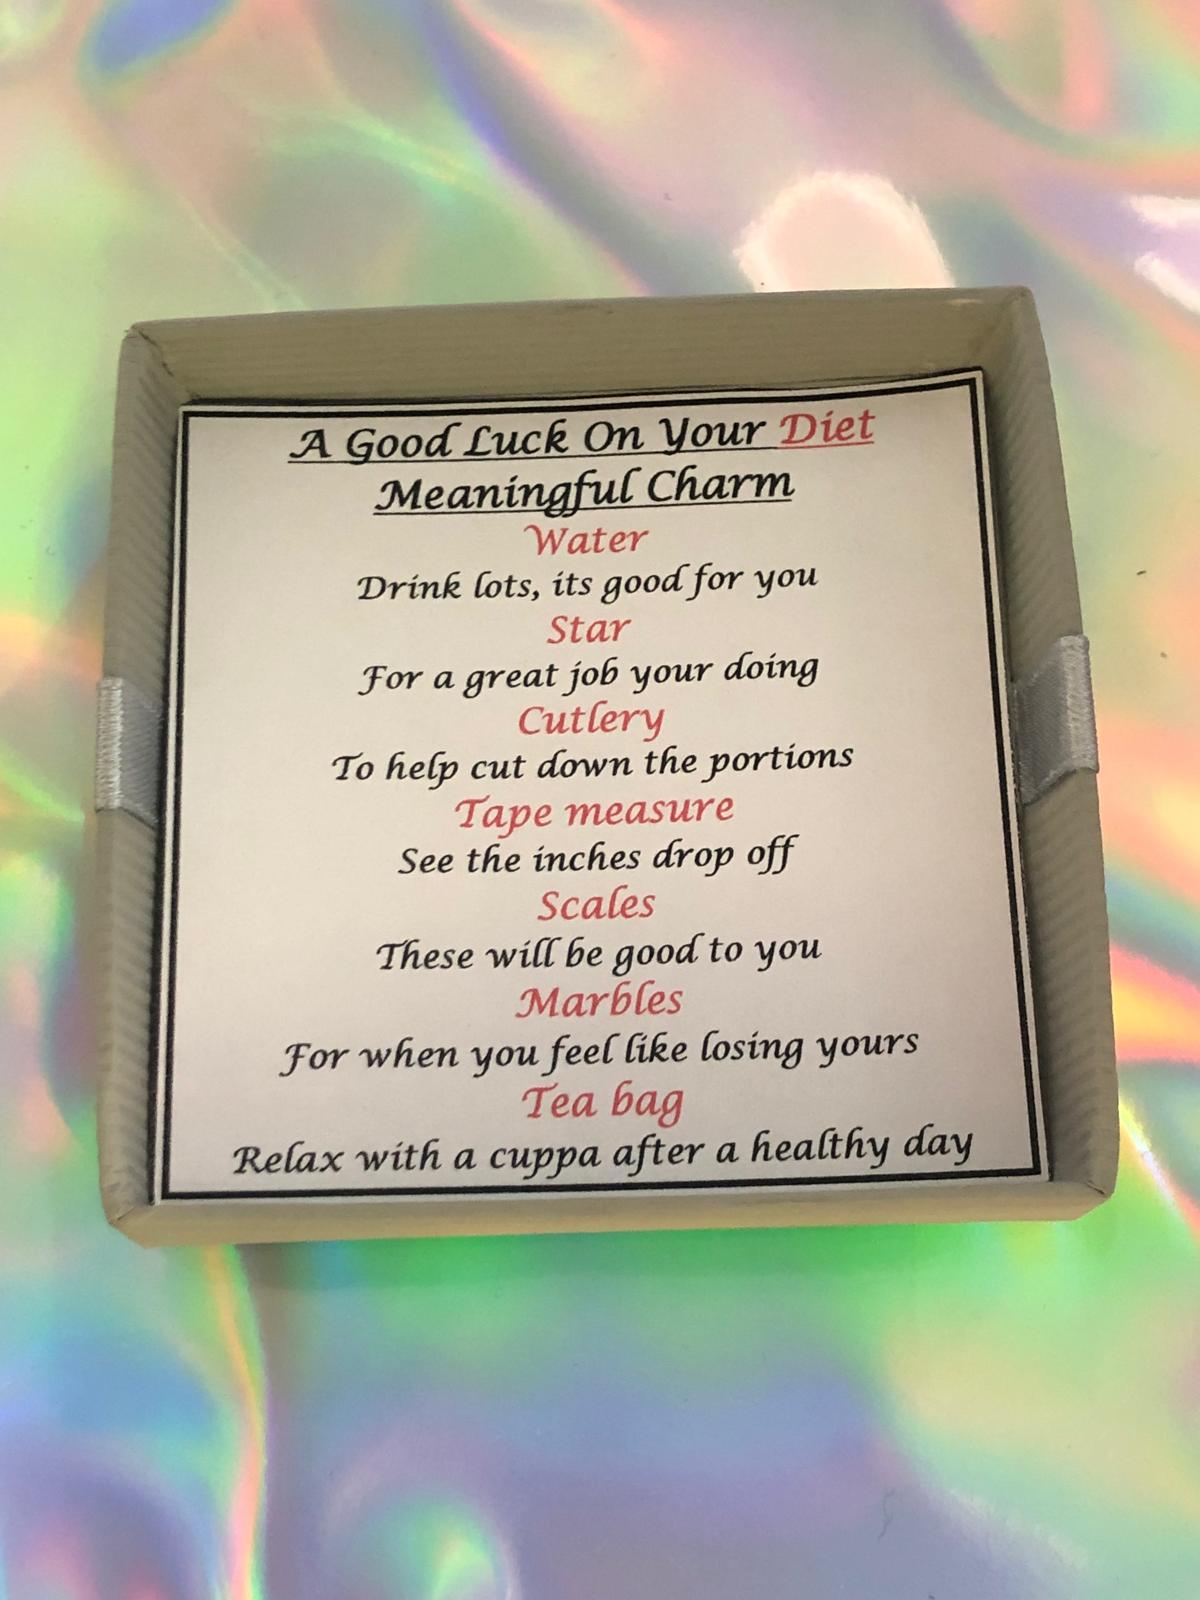 A Good Luck On Your Diet
Meaningful Charm
Water
Drink lots, its good for you
Star
For a great job your doing
Cutlery
To help cut down the portions
Tape measure
See the inches drop off
Scales
These will be good to you
Marbles
For when you feel like losing yours
Tea bag
Relax with a cuppa after a healthy day